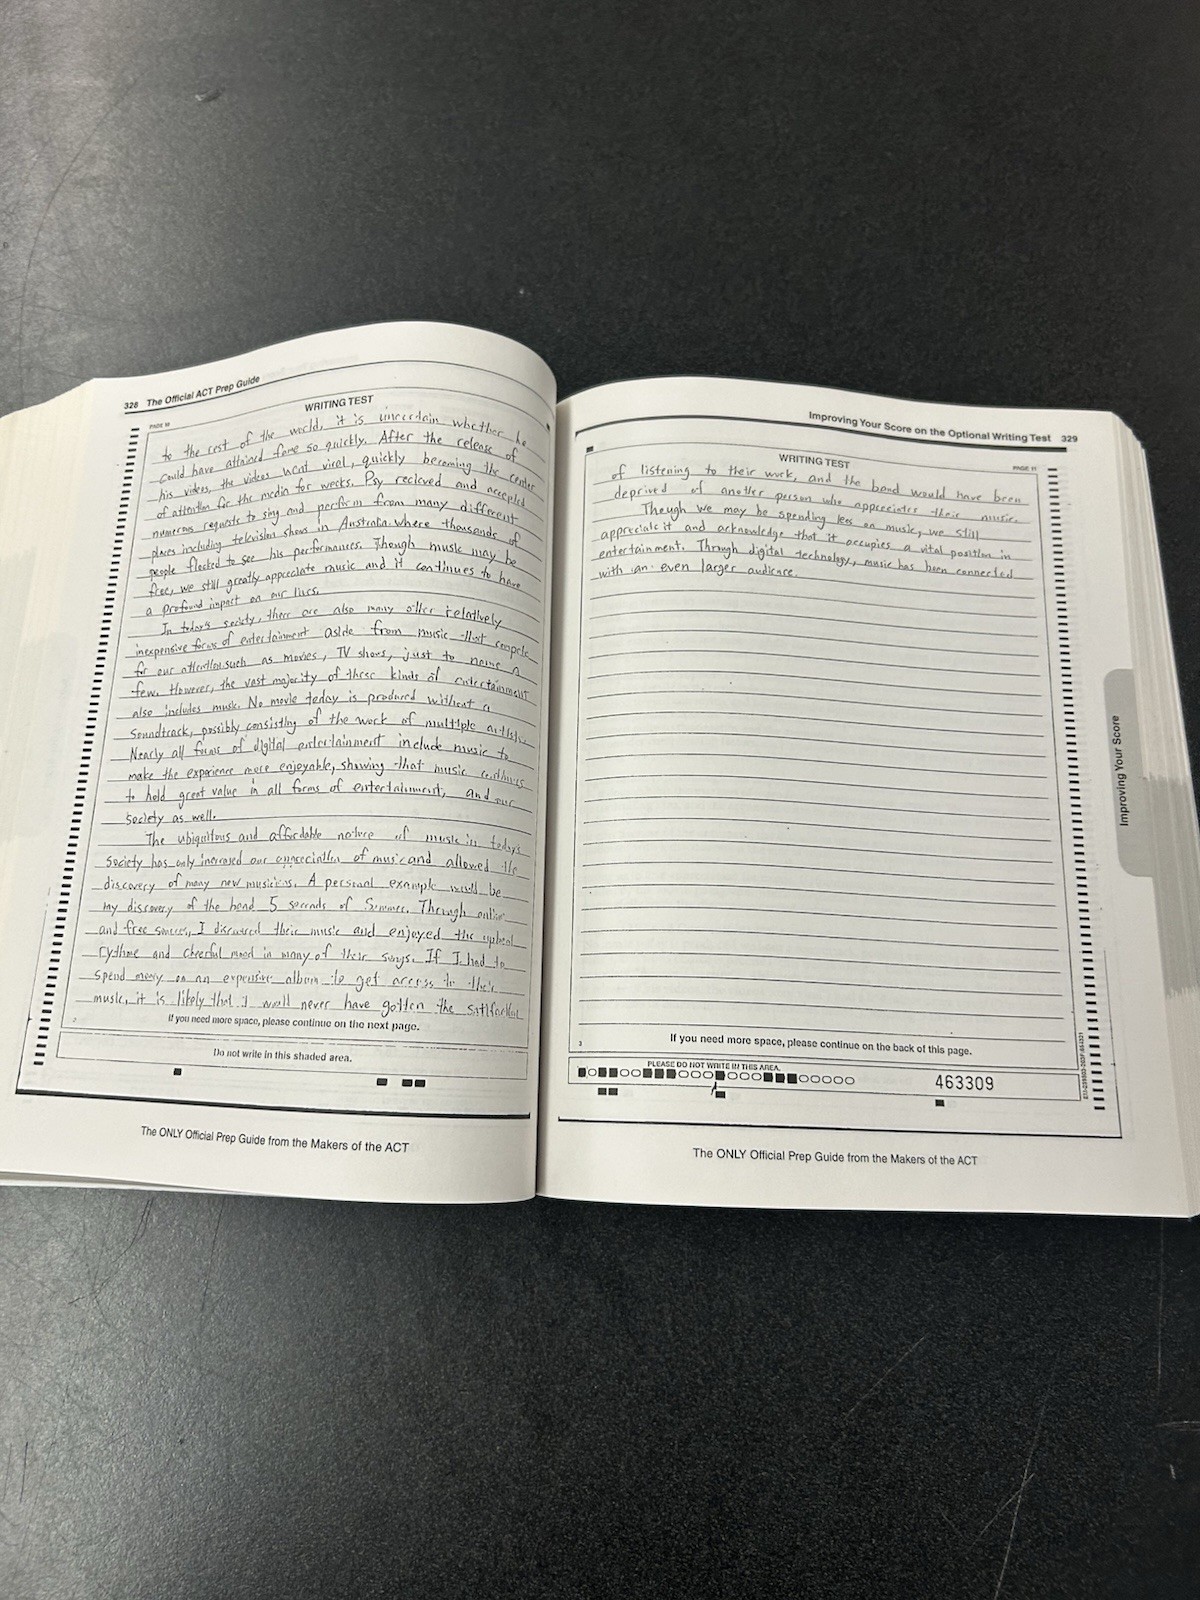 328 The Official ACT Prep Guide
WRITING TEST
to the rest of the world, it is uncertain whether he
could have attained fame so quickly. After the release of
his videos, the videos went viral, quickly becoming the center
of attention for the media for weeks. Psy recieved and accepted
numerous requests to sing and perform from many different
places including television shows in Australia where thousands of
people flocked to see his performances. Though music may be
free, we still greatly appreciate music and it continues to have
a profound impact on our lives.
In today's society, there are also many other relatively
inexpensive forms of entertainment aside from music that compete
for our attention such as movies, TV shows, just to name a
few. However, the vast majority of these kinds of entertainment
also includes music. No movie today is produced without a
soundtrack, possibly consisting of the work of multiple artists.
Nearly all forms of digital entertainment include music to
make the experience more enjoyable, showing that music continues
to hold great value in all forms of entertainment, and our
society as well.
The ubiquitous and affordable nature of music in todays
society has only increased our appreciation of music and allowed the
discovery of many new musicians. A personal example would be
my discovery of the band 5 Seconds of Summer. Through online
and free sources, I discovered their music and enjoyed the upbeat
rythme and cheerful mood in many of their songs. If I had to
spend money on an expensive album to get access to their
music, it is likely that I would never have gotten the
If you need more space, please continue on the next page.
Do not write in this shaded area.
The ONLY Official Prep Guide from the Makers of the ACT
Improving Your Score on the Optional Writing Test 329
WRITING TEST
PAGE 11
of listening to their work, and the band would have been
deprived of another person who appreciates their music.
Though we may be spending less on music, we still
appreciate it and acknowledge that it occupies a vital position in
entertainment. Through digital technology, music has been connected
with an even larger audience.
If you need more space, please continue on the back of this page.
PLEASE DO NOT WRITE IN THIS AREA.
463309
The ONLY Official Prep Guide from the Makers of the ACT
Improving Your Score